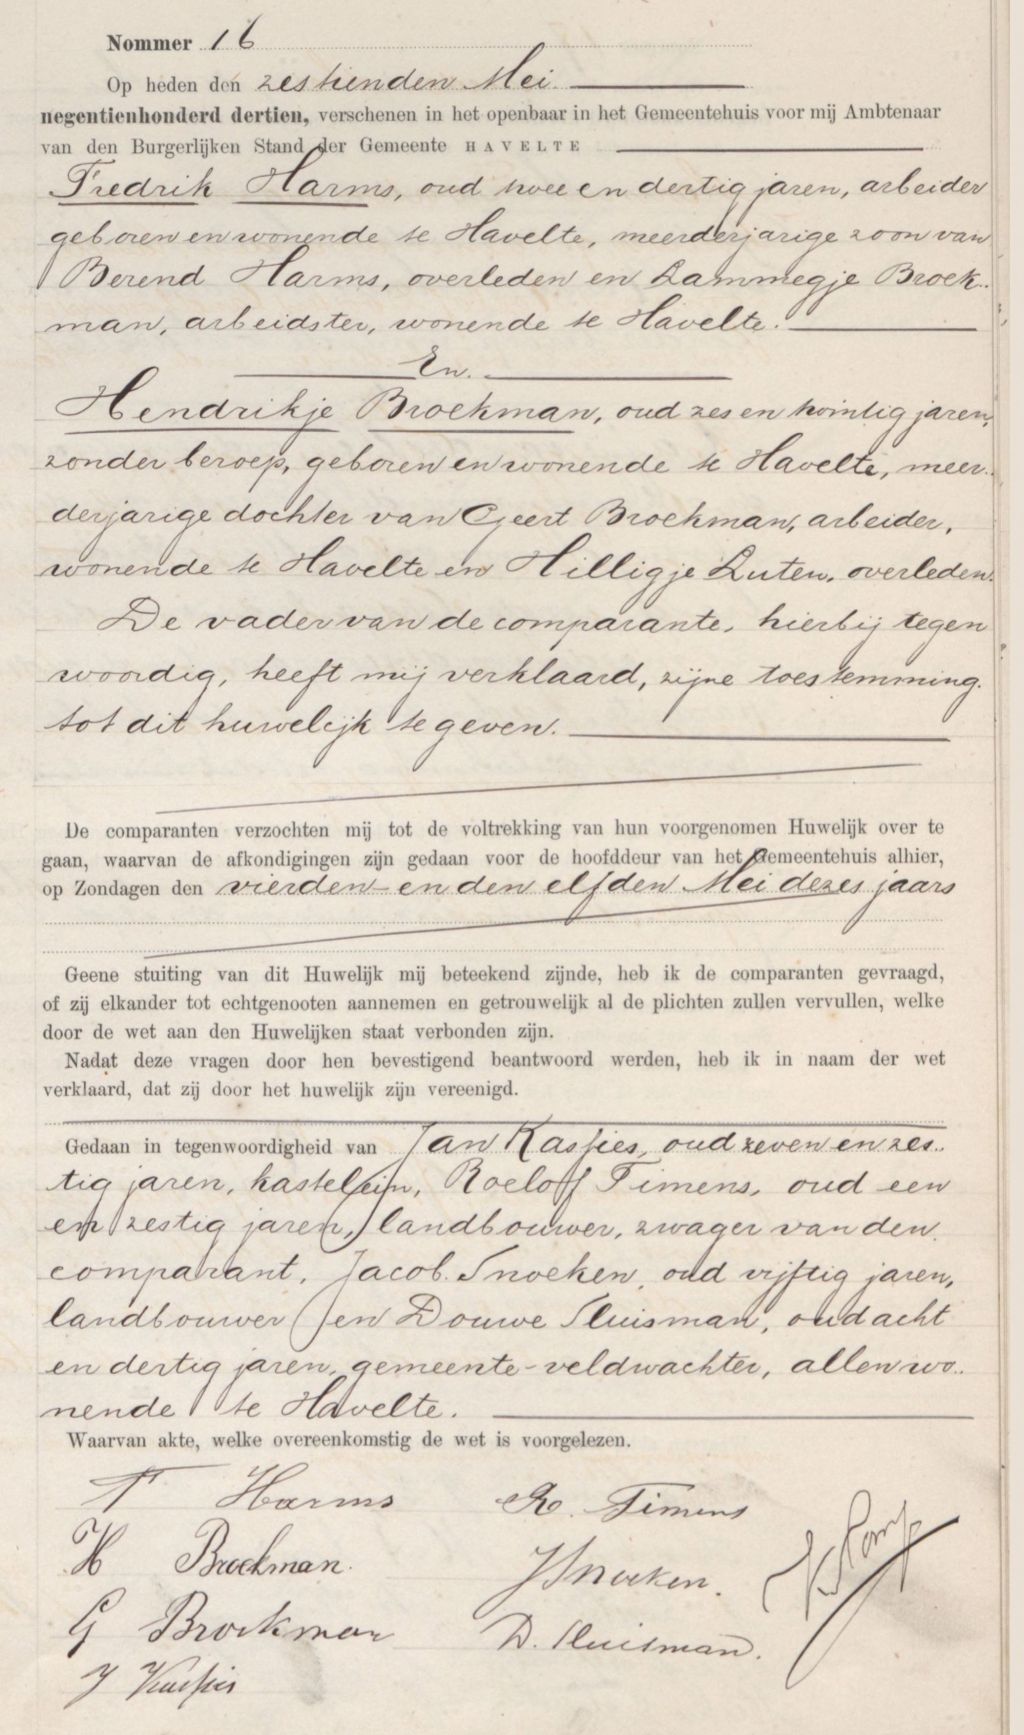 Nommer 16
Op heden den zestienden Mei
negentienhonderd dertien, verschenen in het openbaar in het Gemeentehuis voor mij Ambtenaar
van den Burgerlijken Stand der Gemeente HAVELTE
Fredrik Harms, oud twee en dertig jaren, arbeider
geboren en wonende te Havelte, meerderjarige zoon van
Berend Harms, overleden en Lammegje Broek-
man, arbeidster, wonende te Havelte.
En.
Hendrikje Broekman, oud zes en twintig jaren,
zonder beroep, geboren en wonende te Havelte, meer-
derjarige dochter van Geert Broekman, arbeider,
wonende te Havelte en Hilligje Luten, overleden.
De vader van de comparante, hierbij tegen
woordig, heeft mij verklaard, zijne toestemming
tot dit huwelijk te geven.
De comparanten verzochten mij tot de voltrekking van hun voorgenomen Huwelijk over te
gaan, waarvan de afkondigingen zijn gedaan voor de hoofddeur van het Gemeentehuis alhier,
op Zondagen den vierden en den elfden Mei dezes jaars
Geene stuiting van dit Huwelijk mij beteekend zijnde, heb ik de comparanten gevraagd,
of zij elkander tot echtgenooten aannemen en getrouwelijk al de plichten zullen vervullen, welke
door de wet aan den Huwelijken staat verbonden zijn.
Nadat deze vragen door hen bevestigend beantwoord werden, heb ik in naam der wet
verklaard, dat zij door het huwelijk zijn vereenigd.
Gedaan in tegenwoordigheid van Jan Kasjies, oud zeven en zes-
tig jaren, kastelein, Roelof Timens, oud een
en zestig jaren, landbouwer, zwager van den
comparant, Jacob Snoeken, oud vijftig jaren,
landbouwer en Douwe Sluisman, oud acht
en dertig jaren, gemeente-veldwachter, allen wo-
nende te Havelte.
Waarvan akte, welke overeenkomstig de wet is voorgelezen.
F Harms R. Timens
H Broekman. J Snoeken.
G Broekman D. Sluisman.
J Kasjies